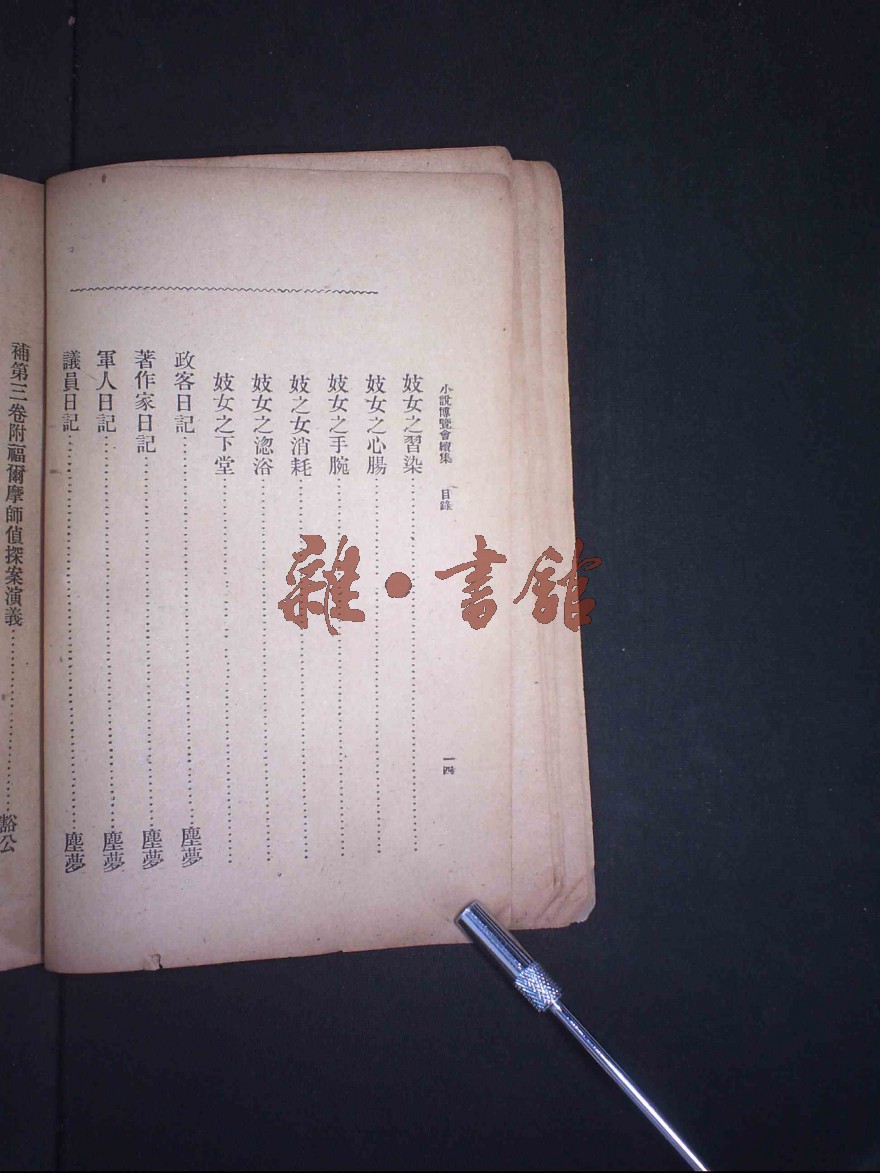 小說博覽會續集　目錄　一四
妓女之習染
妓女之心腸
妓女之手腕
妓之女消耗
妓女之淴浴
妓女之下堂
政客日記……塵夢
著作家日記……塵夢
軍人日記……塵夢
議員日記……塵夢
補第三卷附福爾摩師偵探案演義……豁公
雜・書館